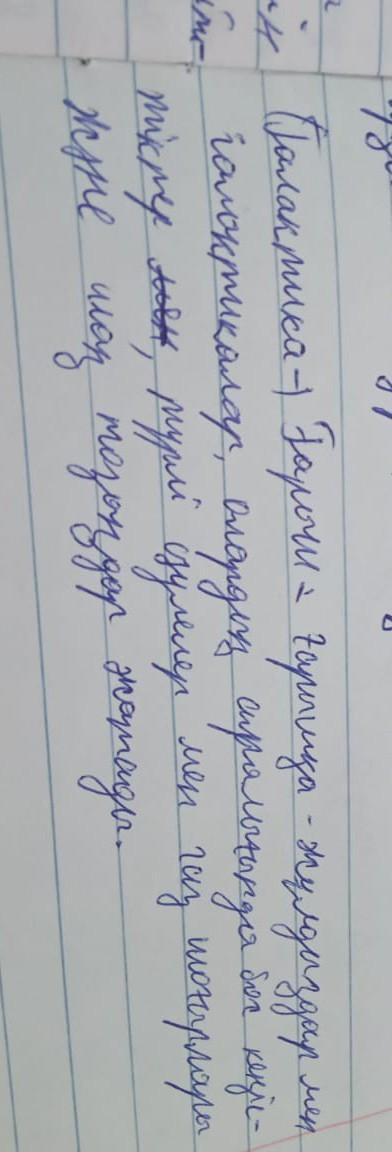 Галактика → Ғарыш = ғарышта - жұлдыздар мен
галактикалар, олардың аралығында бос кеңіс-
тіктер мен, түрлі сәулелер мен газ шаңдары
және шаң тозаңдар жатады.